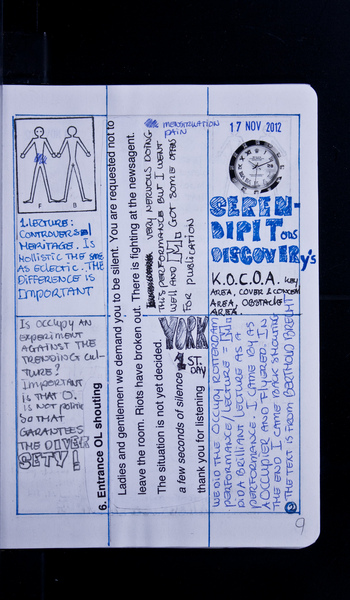 F B
1. LECTURE:
CONTROVERSEL
HERITAGE. IS
HOLLISTIC THE SAME
AS ECLECTIC. THE
DIFFERENCE IS
IMPORTANT
IS OCCUPY AN
EXPERIMENT
AGAINST THE
TRENDING CUL-
TURE?
IMPORTANT
IS THAT O.
IS NOT
SO THAT
GARANTEES
THE DIVER
SETY!
6. Entrance OL shouting
Ladies and gentlemen we demand you to be silent. You are requested not to
leave the room. Riots have broken out. There is fighting at the newsagent.
The situation is not yet decided.
a few seconds of silence
thank you for listening
MENSTRUATION
PAIN
VERY NERVOUS DOING
THIS PERFORMANCE BUT I WENT
WELL AND M. GOT SOME OPEN
FOR PUBLICATION
YORK
1 ST.
DAY
17 NOV 2012
SEREN-
DIPITous
DISCOVERY's
K.O.C.O.A. KEY
AREA, COVER & CONCEAL
AREA, OBSTACLE
AREA.
WE DID THE OCCUPY ROTTERDAM
PERFORMANCE/LECTURE = M.
DID A BRILLIANT LECTURE + A
PERFORMANCE. I CAME BY AS
A OCCUPIER AND FLYERED. IN
THE END I CAME BACK SHOUTING
THE TEXT IS FROM BERTHOLD BRECHT
9